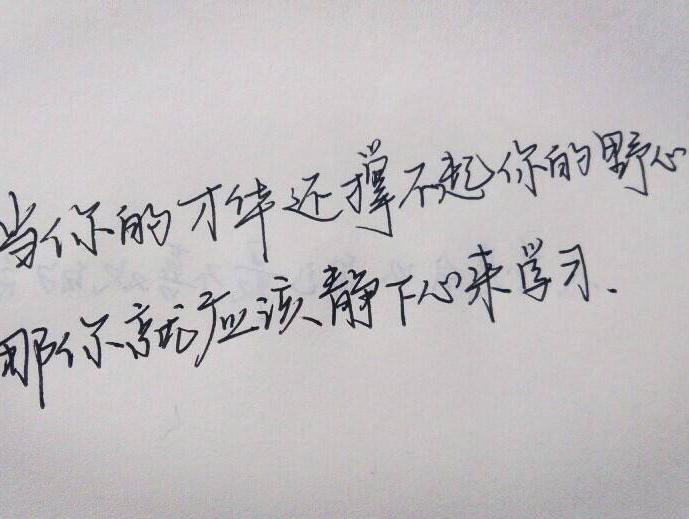 当你的才华还撑不起你的野心
那你就应该静下心来学习.